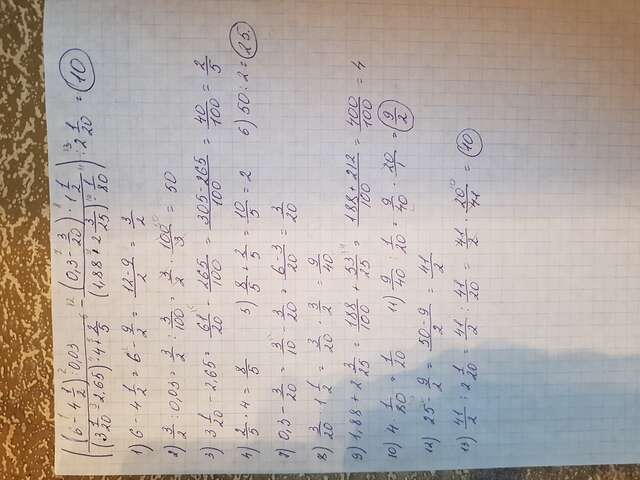 (((6 - 4 1/2) : 0,03) / ((3 1/20 - 2,65) · 4 + 2/5) - ((0,3 - 3/20) · 1 1/2) / ((1,88 + 2 3/25) · 1/80)) : 2 1/20 = 10
1) 6 - 4 1/2 = 6 - 9/2 = 12-9/2 = 3/2
2) 3/2 : 0,03 = 3/2 : 3/100 = 3/2 · 100/3 = 50
3) 3 1/20 - 2,65 = 61/20 - 265/100 = 305-265/100 = 40/100 = 2/5
4) 2/5 · 4 = 8/5 5) 8/5 + 2/5 = 10/5 = 2 6) 50 : 2 = 25
7) 0,3 - 3/20 = 3/10 - 3/20 = 6-3/20 = 3/20
8) 3/20 · 1 1/2 = 3/20 · 3/2 = 9/40
9) 1,88 + 2 3/25 = 188/100 + 53/25 = 188+212/100 = 400/100 = 4
10) 4 · 1/80 = 1/20 11) 9/40 : 1/20 = 9/40 · 20/1 = 9/2
12) 25 - 9/2 = 50-9/2 = 41/2
13) 41/2 : 2 1/20 = 41/2 : 41/20 = 41/2 · 20/41 = 10